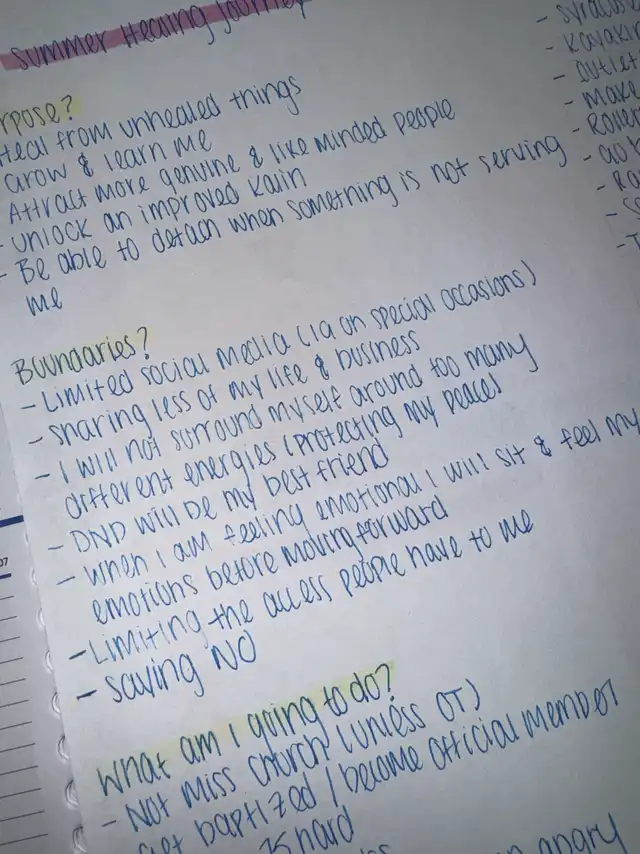 Summer Healing Journey
rpose?
Heal from unhealed things
Grow & learn me
Attract more genuine & like minded people
- unlock an improved Kaiin
- Be able to detach when something is not serving
me
Boundaries?
- Limited social media (IG on special occasions)
- sharing less of my life & business
- I will not surround myself around too many
different energies (protecting my peace)
- DND will be my best friend
- When I am feeling emotional I will sit & feel my
emotions before moving forward
- Limiting the access people have to me
- Saying NO
What am I going to do?
- Not miss church (unless OT)
Get baptized / become official member
75 hard
angry
- Syracuse
- Kayakin
- Outlet
- Make
- Rover
- Go b
- Ro
07